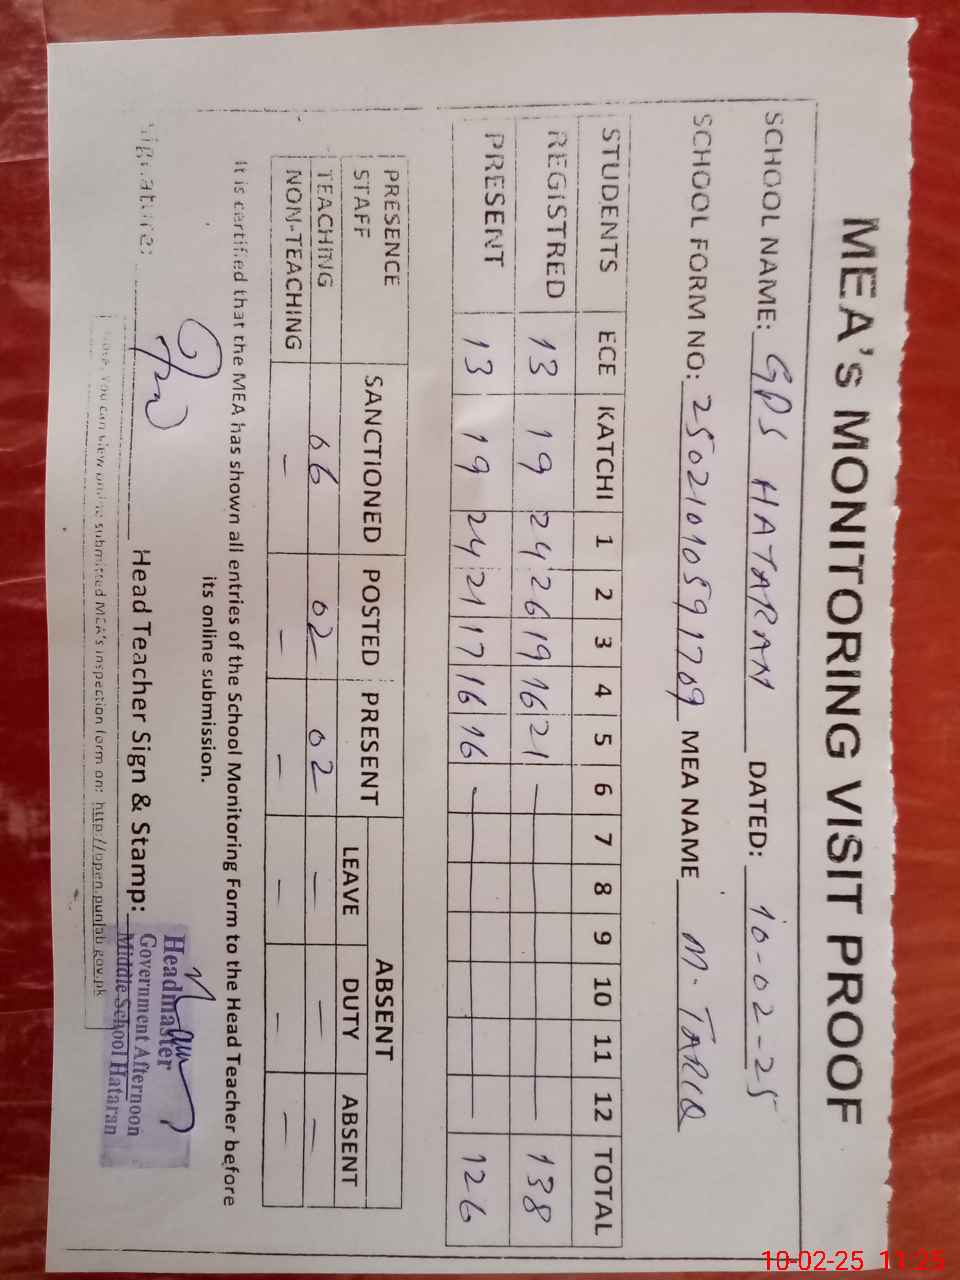 MEA's MONITORING VISIT PROOF
SCHOOL NAME: GPS HATARAN DATED: 10-02-25
SCHOOL FORM NO: 25021010591709 MEA NAME M. TARIQ
STUDENTS ECE KATCHI 1 2 3 4 5 6 7 8 9 10 11 12 TOTAL
REGISTRED 13 19 24 26 19 16 21 — 138
PRESENT 13 19 24 21 17 16 16 — 126
PRESENCE STAFF SANCTIONED POSTED PRESENT ABSENT
LEAVE DUTY ABSENT
TEACHING 06 02 02 — — —
NON-TEACHING — — — — — —
It is certified that the MEA has shown all entries of the School Monitoring Form to the Head Teacher before
its online submission.
Signature: Head Teacher Sign & Stamp:
Headmaster
Government Afternoon
Middle School Hataran
Note: You can view online submitted MEA's inspection form on: http://open.punjab.gov.pk
10-02-25 11:25